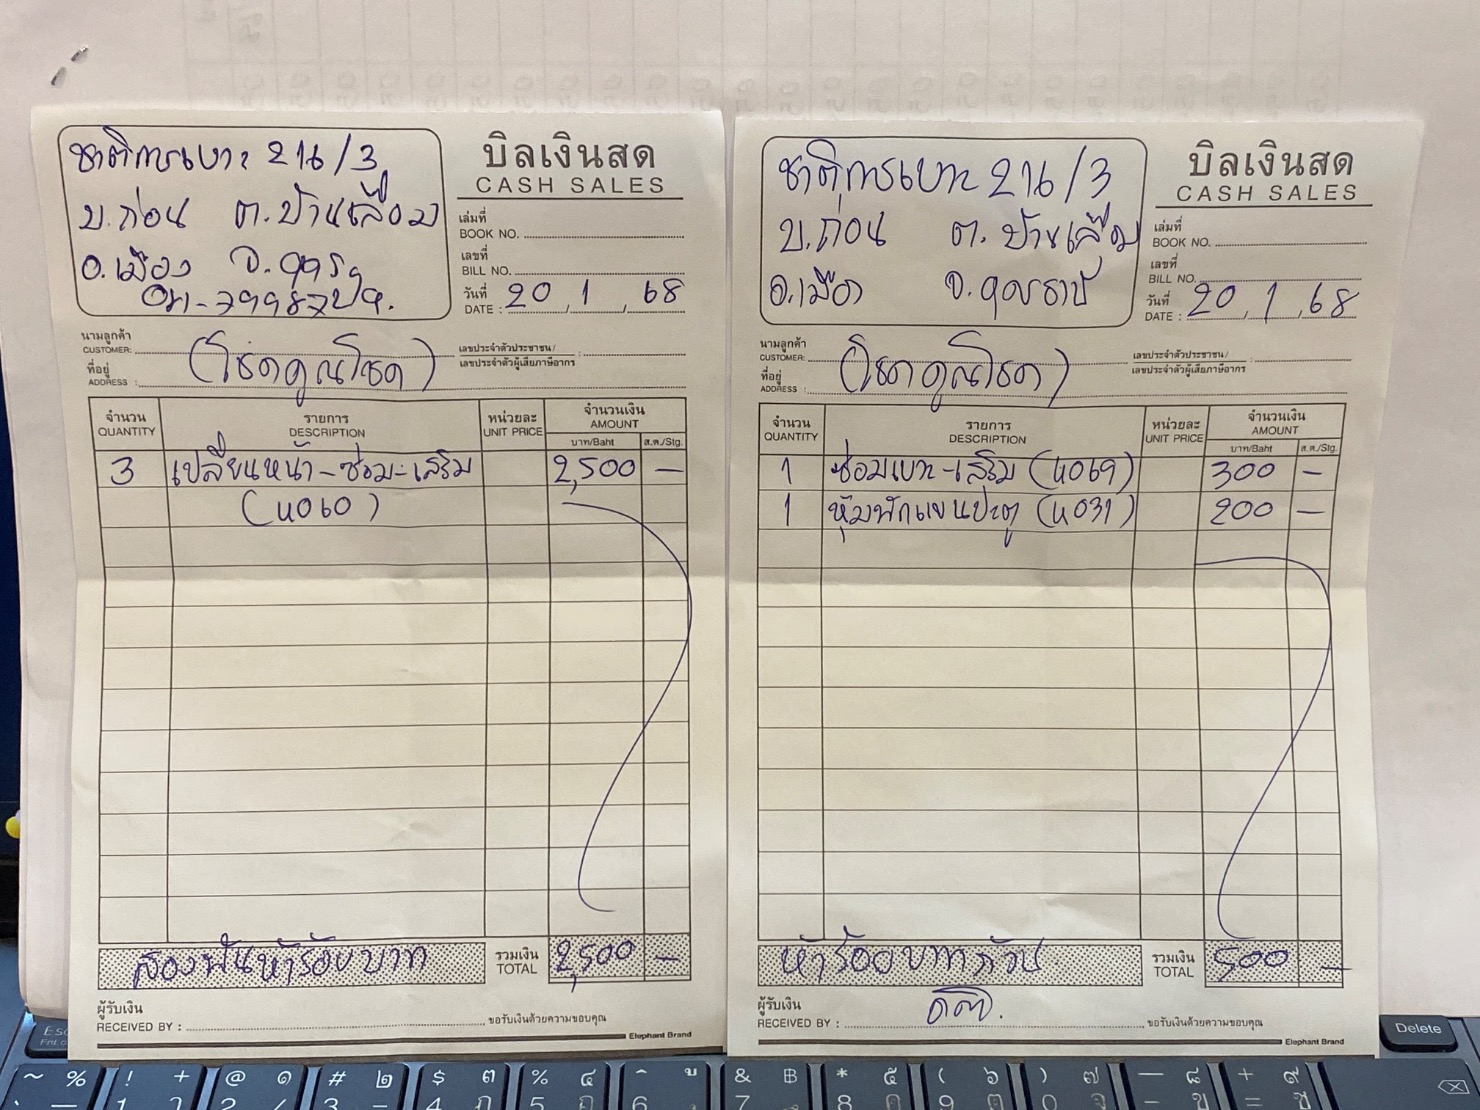 ชาติการเบาะ 216/3
บ.ก่อน ต.บ้านเลื่อม
อ.เมือง จ.
บิลเงินสด
CASH SALES
เล่มที่
BOOK NO.
เลขที่
BILL NO.
วันที่
DATE : 20 / 1 / 68
นามลูกค้า
CUSTOMER:
(โชคคูณโชค)
เลขประจำตัวประชาชน/ :
เลขประจำตัวผู้เสียภาษีอากร
ที่อยู่
ADDRESS :
จำนวน รายการ หน่วยละ จำนวนเงิน
QUANTITY DESCRIPTION UNIT PRICE AMOUNT
บาท/Baht ส.ต./Stg.
3 เปลี่ยนหน้า-ซ่อม-เสริม 2,500 —
(น060)
สองพันห้าร้อยบาท รวมเงิน 2,500 —
TOTAL
ผู้รับเงิน
RECEIVED BY : ขอรับเงินด้วยความขอบคุณ
Elephant Brand
ชาติการเบาะ 216/3
บ.ก่อน ต.บ้านเลื่อม
อ.เมือง จ.อุดรธานี
บิลเงินสด
CASH SALES
เล่มที่
BOOK NO.
เลขที่
BILL NO.
วันที่
DATE : 20 / 1 / 68
นามลูกค้า
CUSTOMER:
(โชคคูณโชค)
เลขประจำตัวประชาชน/ :
เลขประจำตัวผู้เสียภาษีอากร
ที่อยู่
ADDRESS :
จำนวน รายการ หน่วยละ จำนวนเงิน
QUANTITY DESCRIPTION UNIT PRICE AMOUNT
บาท/Baht ส.ต./Stg.
1 ซ่อมเบาะ-เสริม (น069) 300 —
1 หุ้มพักแขนประตู (น031) 200 —
ห้าร้อยบาทถ้วน รวมเงิน 500 —
TOTAL
ผู้รับเงิน
RECEIVED BY : ขอรับเงินด้วยความขอบคุณ
Elephant Brand
Esc Delete